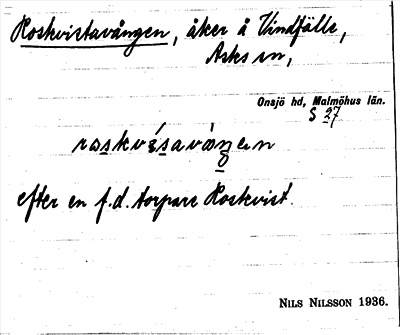 Roskvistavången, åker å Vindfälle,
Asks sn,
Onsjö hd, Malmöhus län.
S 27
raskvi̍savàŋen
efter en f.d. torpare Roskvist.
NILS NILSSON 1936.